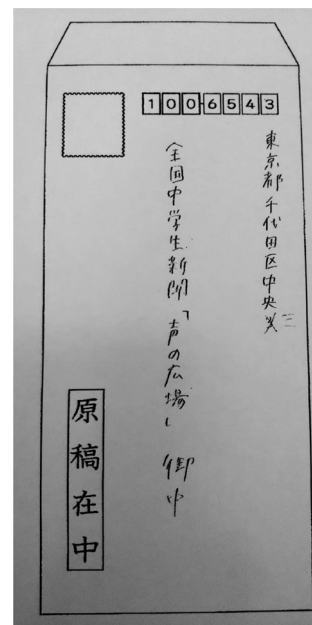 1006543
東京都千代田区中央
全国中学生新聞「声の広場」 御中
原稿在中